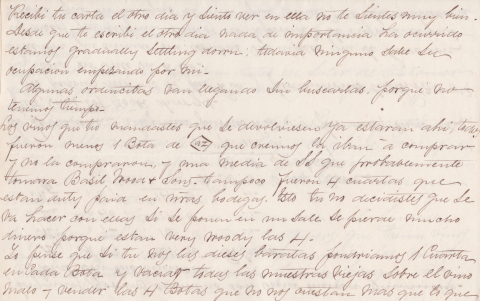 Recibi tu carta el otro dia y siento ver en ella no te sientes muy bien.
Desde que te escribi el otro dia nada de importancia ha ocurrido
estamos gradually settling down: todavia ninguno sabe su
ocupación empezando por mi-
Algunas ordencitas van llegando sin buscarlas, porque no
tenemos tiempo-
Los vinos que tu mandastes que se devolviesen ya estaran ahi,
fueron menos 1 Bota de que creemos la iban a comprar
y no la compraron, y una media de SS que probablemente
tomara Basil Wood & Sons- tampoco fueron 4 cuartas que
estan duty paid en unas bodegas. Esto tu no decidistes que se
va hacer con ellas si se ponen en un sale se pierde mucho
dinero porque estan very woody las 4.
Lo pense que si tu nos las dieses baratas pondriamos 1 Cuarta
en cada Bota y vaciar todas las muestras viejas sobre el vino
malo y vender las 4 Botas que no nos cuestan mas que lo que